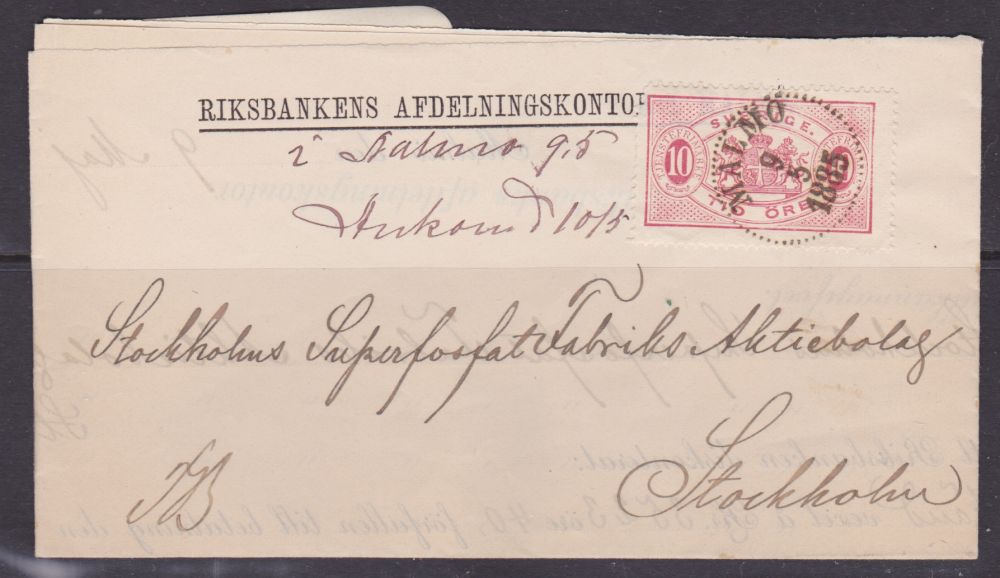 RIKSBANKENS AFDELNINGSKONTOR
i Malmo 9.5
Ankom d 10/5
TJENSTEFRIMÄRKE
SVERIGE.
10
TIO ÖRE
MALMÖ
9
5
1885
Stockholms Superfosfat Fabriks Aktiebolag
Stockholm